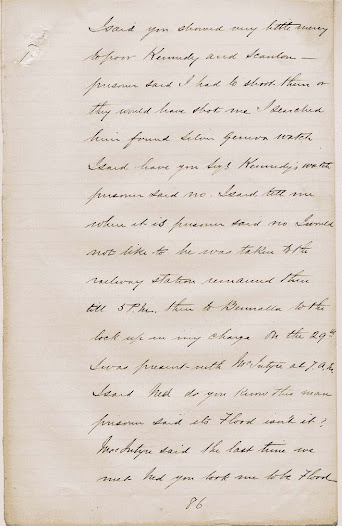 I said you showed very little mercy
to poor Kennedy and Scanlon —
prisoner said I had to shoot them or
they would have shot me I searched
him found silver Geneva watch
I said have you Sgt Kennedy's watch
prisoner said no. I said tell me
where it is prisoner said no I would
not like to he was taken to the
railway station remained there
till 5 P.M. then to Benalla to the
lock up in my charge On the 29th
I was present with McIntyre at 7 A.M.
I said Ned do you know this man
prisoner said its Flood isn't it?
MacIntyre said the last time we
met Ned you took me to be Flood
86